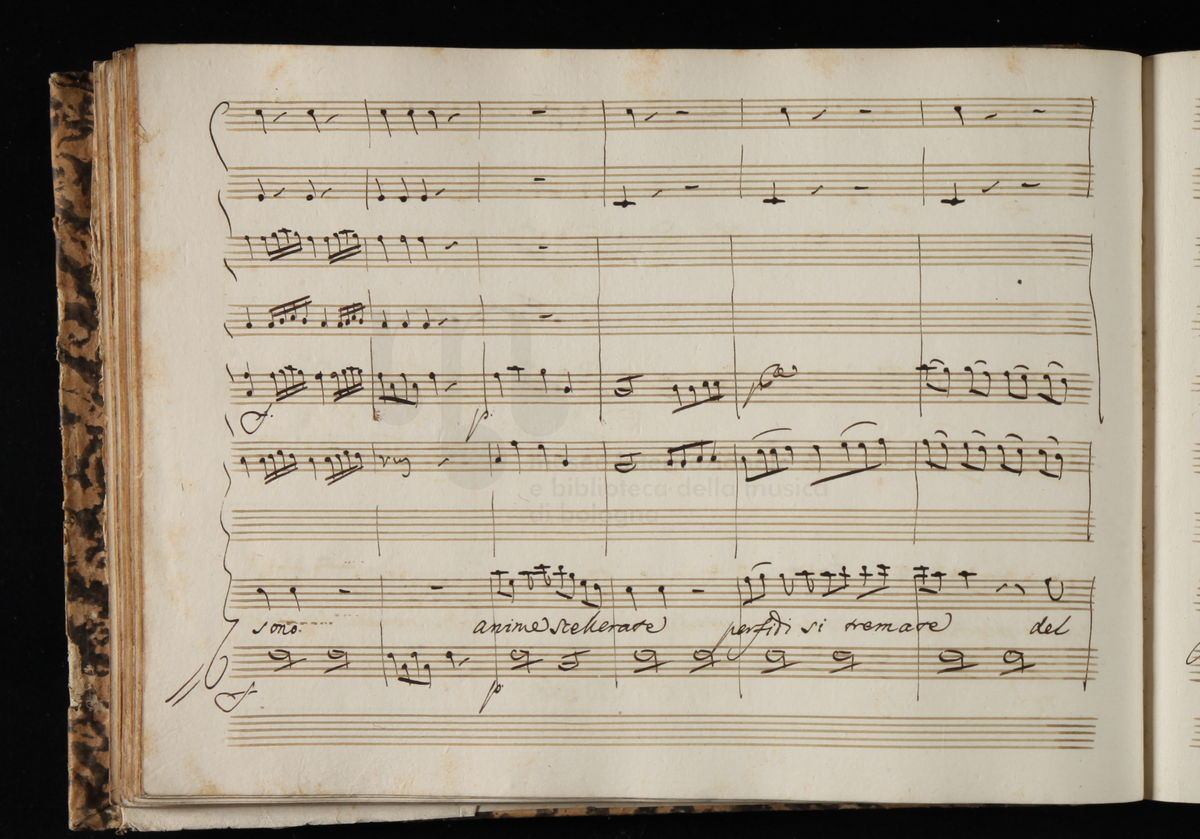 f.
p.
unis
e biblioteca della musica
di bologna
sono anime scellerate perfidi si tremate del
f
p